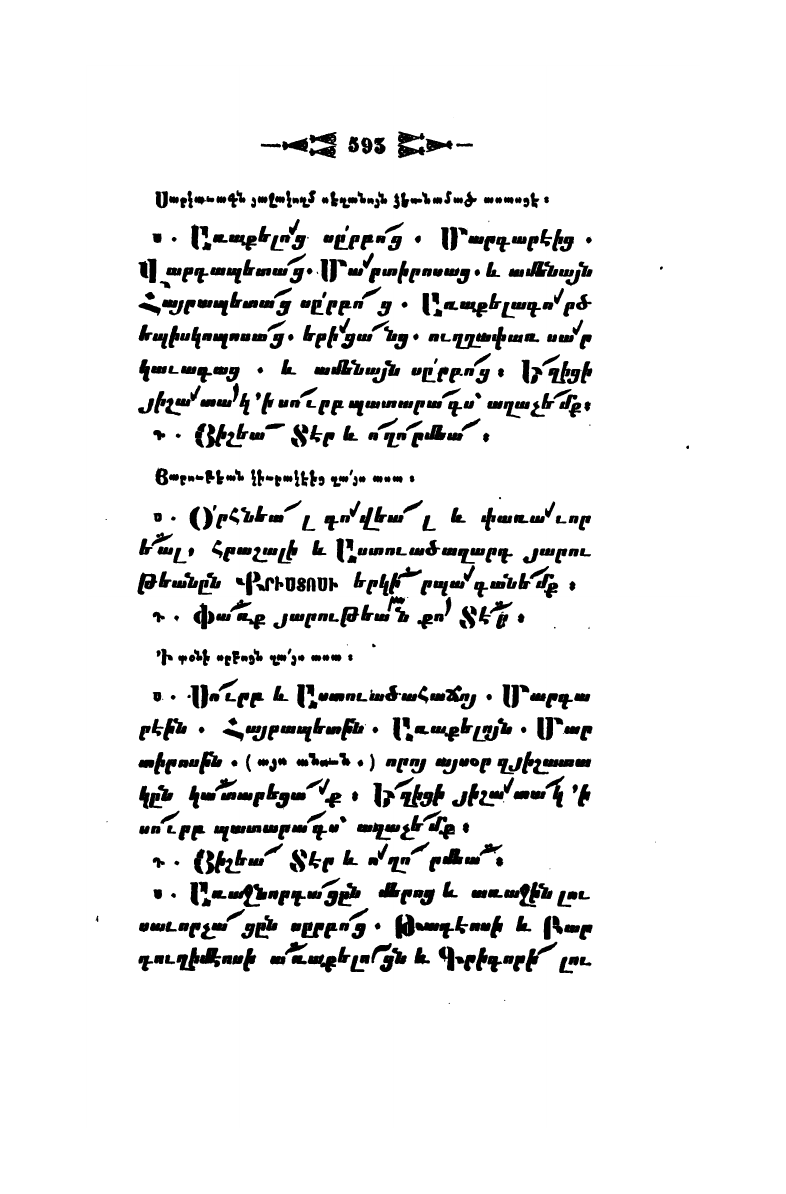 593
Սարկաւագն յաջակողմ սեղանոյն չեւանամած ասասցէ :
ս . Առաքելո՛ց սըրբո՜ց . Մարգարէից .
Վարդապետա՜ց. Մա՛րտիրոսաց. և ամենայն
Հայրապետա՜ց սըրբո՜ց . Առաքելագո՛րծ
եպիսկոպոսա՜ց. երի՛ցա՜նց. ուղղափառ սա՛ր
կաւագաց . և ամենայն սըրբո՜ց : Ե՜ղիցի
յիշա՛տա՛կ ՚ի սո՜ւրբ պատարա՜գս՝ աղաչե՜մք:
դ . Յիշեա՜ Տէր և ո՜ղո՜րմեա՜ :
Յարութեան կիւրակէից զա՛յս ասա :
ս . Օ՜րհնեա՜լ գո՛վեա՜լ և փառա՛ւոր
ե՜ալ, հրաշալի և Աստուածազարդ յարու
թեանըն ՔՐԻՍՏՈՍԻ երկի՜րպա՛գանե՜մք :
դ . Փա՜ռք յարութեա՜ն քո՛ Տէ՜ր :
՚Ի տօնի սրբոցն զա՛յս ասա :
ս . Սո՜ւրբ և Աստուածահաճոյ . Մարգա
րէին . Հայրապետին . Առաքելոյն . Մար
տիրոսին . ( այս անուն . ) որոյ այսօր զյիշատա
կըն կա՜տարեցա՜՛ք : Ե՜ղիցի յիշա՛տա՜կ ՚ի
սո՜ւրբ պատարա՜գս՝ աղաչե՜մք :
դ . Յիշեա՜ Տէր և ո՛ղո՜րմեա՜ :
ս . Առաջնորդա՜ցըն մերոց և առաջին լու
սաւորչա՜ցըն սըրբո՜ց . Թադէոսի և Բար
դուղիմէոսի ա՜ռաքելո՜ցն և Գրիգորի՜ լու